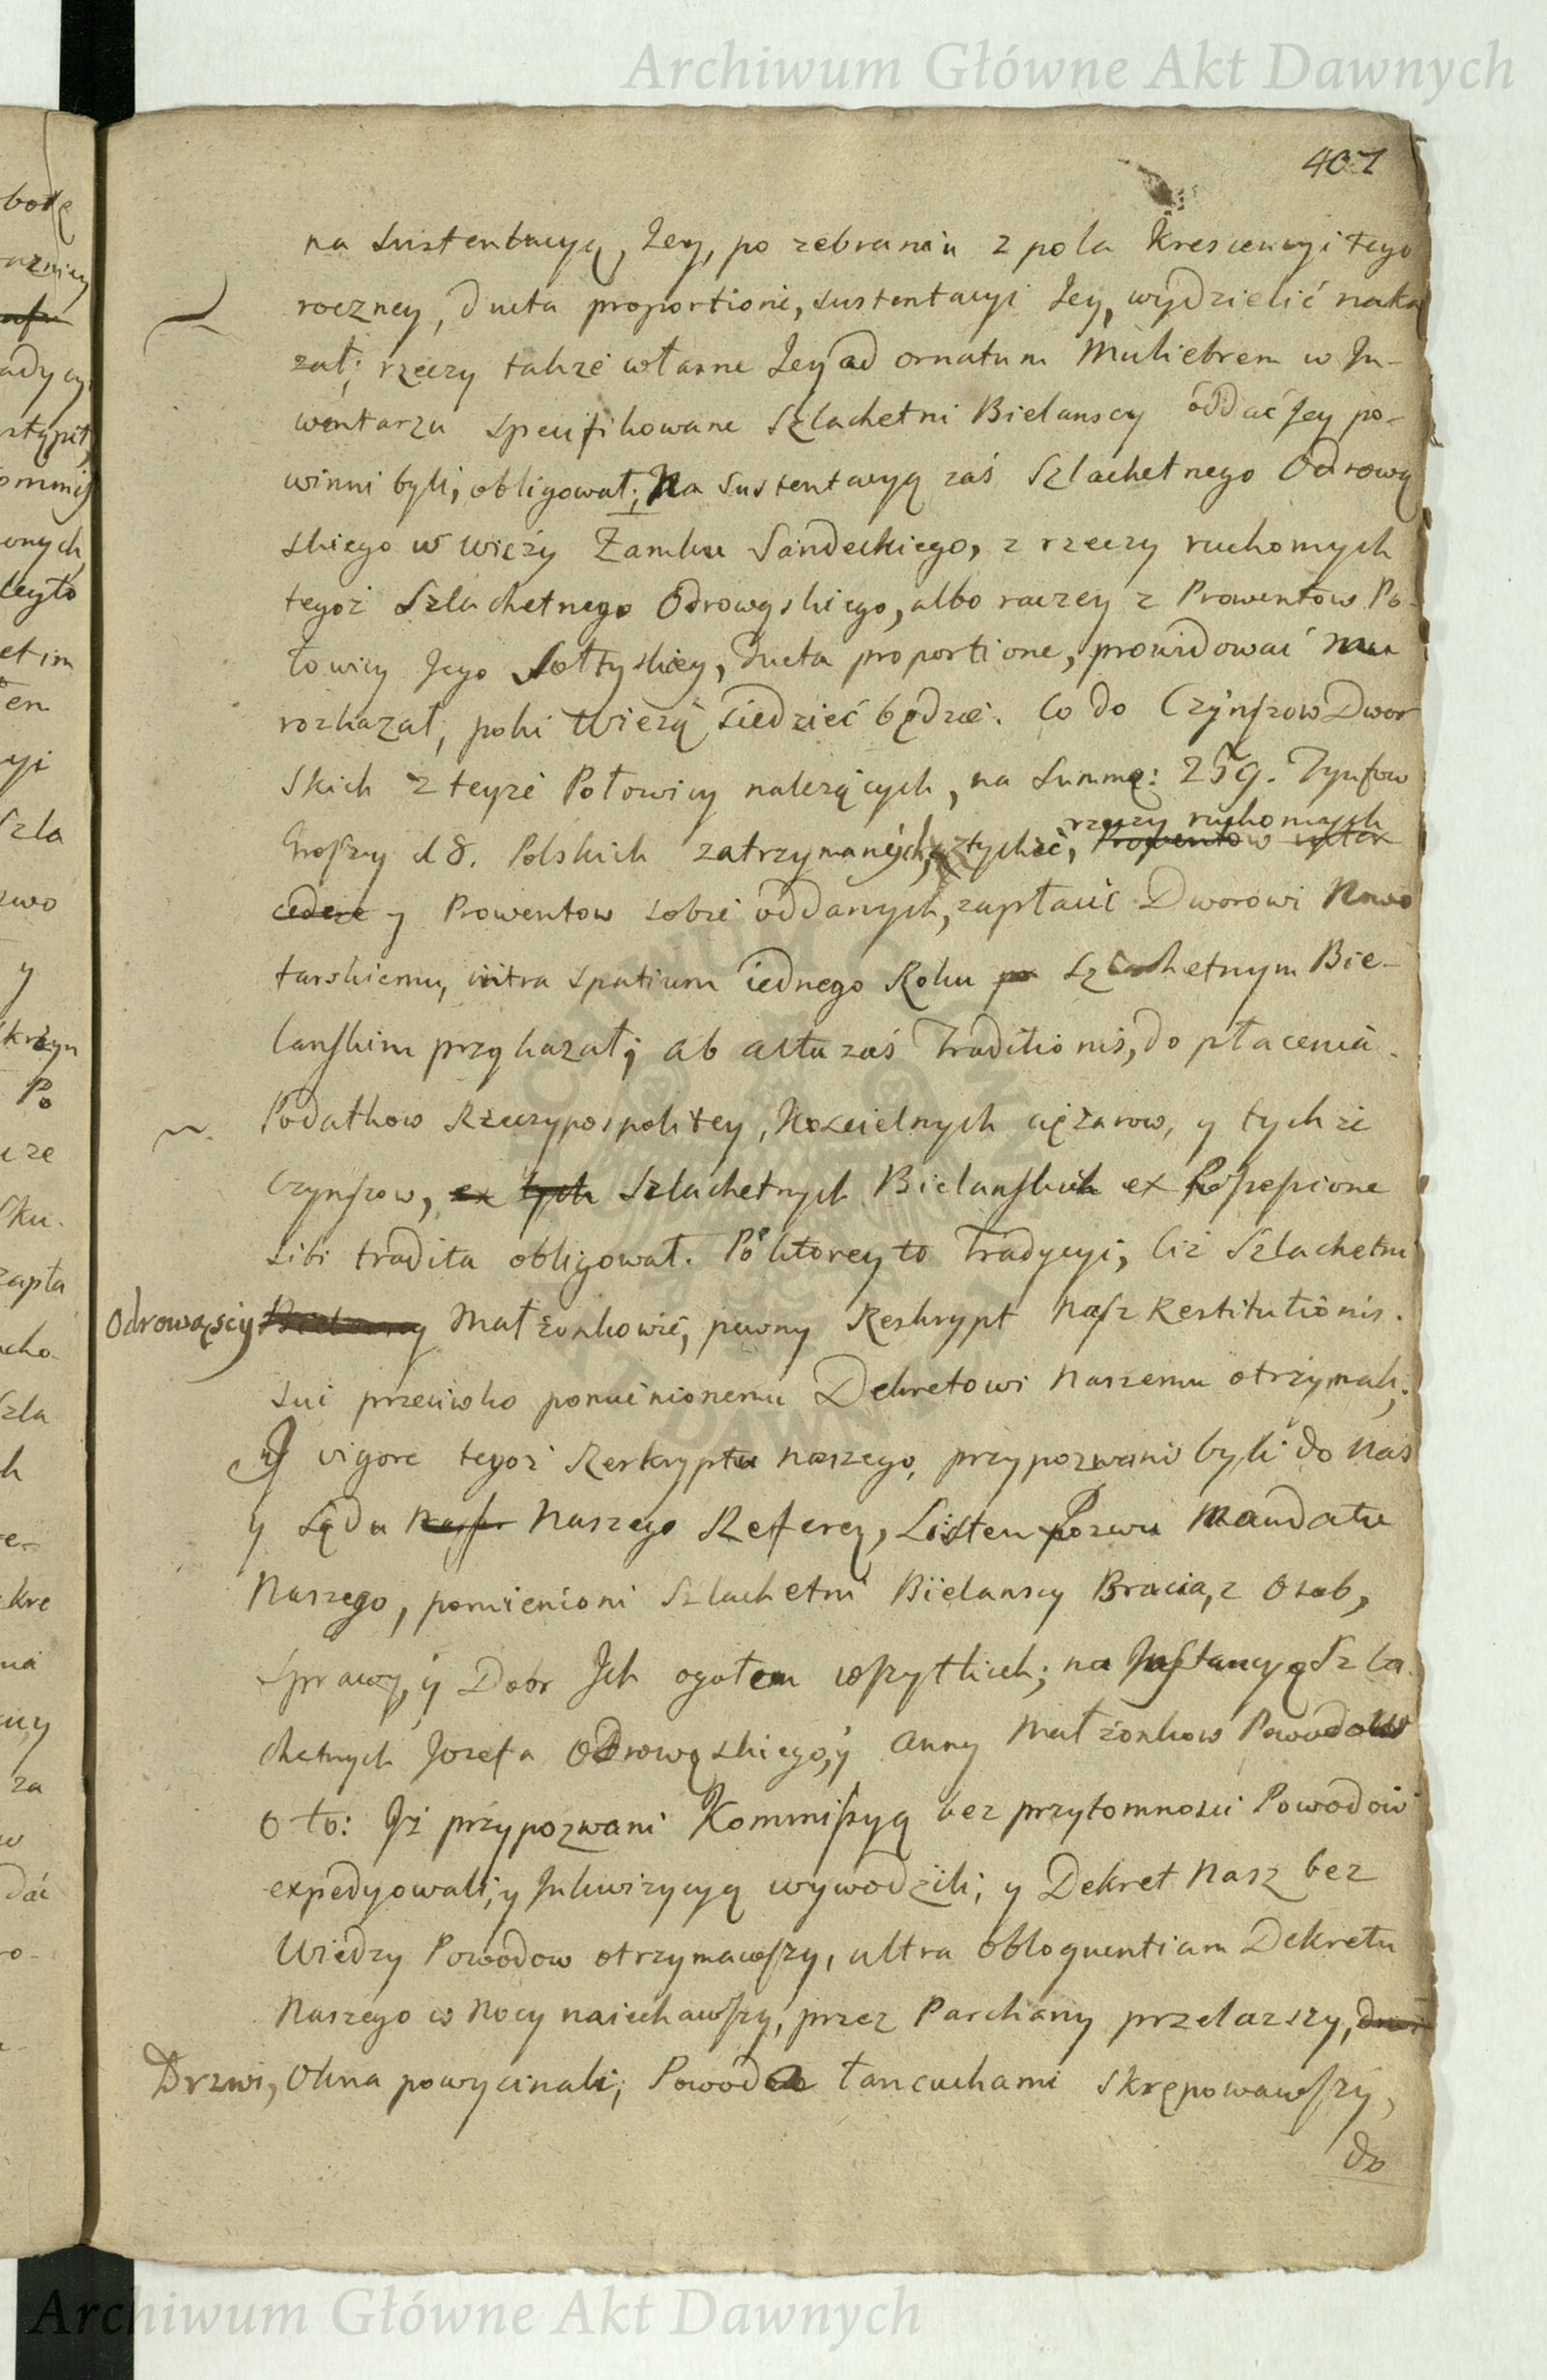 Archiwum Główne Akt Dawnych
407
na sustentacyą Jey, po zebraniu z pola Krescencyi tego
roczney, ducta proportione, sustentacyi Jey, wydzielić naka
zał; rzeczy także własne Jey ad ornatum Muliebrem w In-
wentarzu specifikowane Szlachetni Bielanscy óddać Jey po-
winni byli, obligował; Na sustentacyą zaś Szlachetnego Odrową
skiego w Wieży Zamku Sandeckiego, z rzeczy ruchomych
tegoż Szlachetnego Odrowąskiego, albo raczey z Prowentow Po-
łowicy Jego Sołtyskiey, ducta proportione, prowidować mu
rozkazał, poki Wieżą siedzieć będzie. Co do Czynszow Dwor
skich z teyże Połowicy należących, na Summę: 259. Tynfow
rzeczy ruchomych
Groszy 18. Polskich zatrzymanych, z tychże, Prowentow
cedere y Prowentow sobie oddanych, zapłacić Dworowi Nowo
tarskiemu, intra spatium iednego Roku po Szlachetnym Bie-
lanskim przykazał; ab actu zaś Traditionis, do płacenia
Podatkow Rzeczypospolitey, Koscielnych ciężarow, y tychże
Czynszow, ex tych Szlachetnych Bielanskich ex Possessione
sibi tradita obligował. Po ktorey to Tradycyi, liż Szlachetni
Odrowąscy Bielanscy Małżonkowie, pewny Reskrypt Nasz Restitutionis
sui przeciwko pomienionemu Dekretowi Naszemu otrzymali;
Y vigore tegoż Reskryptu Naszego, przypozwani byli do Nas
y Sądu Nasze Naszego Referen, Listem Pozwu Mandatu
Naszego, pomienioni Szlachetni Bielanscy Bracia, z Osob,
sprawy, y Dobr Ich ogołem wszytkich; na Instancyą Szla
chetnych Jozefa Odrowąskiego, y Anny Małżonkow Powodow
o to: Iż przypozwani Kommissyą bez przytomności Powodow
expedyowali, y Inkwizycyą wywodzili; y Dekret Nasz bez
Wiedzy Powodow otrzymawszy, ultra obloquentiam Dekretu
Naszego w Nocy naiechawszy, przez Parchany przelazszy, drzwi
Drzwi, Okna powycinali, Powoda łancuchami skrępowawszy,
do
Archiwum Główne Akt Dawnych